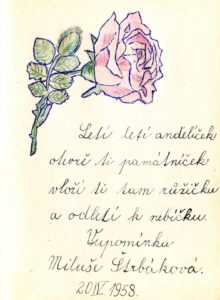 Letí letí andělíček
otvoř ti památníček
vloží ti tam růžičku
a odletí k nebíčku.
Vzpomínku
Miluši Štrbáková.
20.IV.1958.